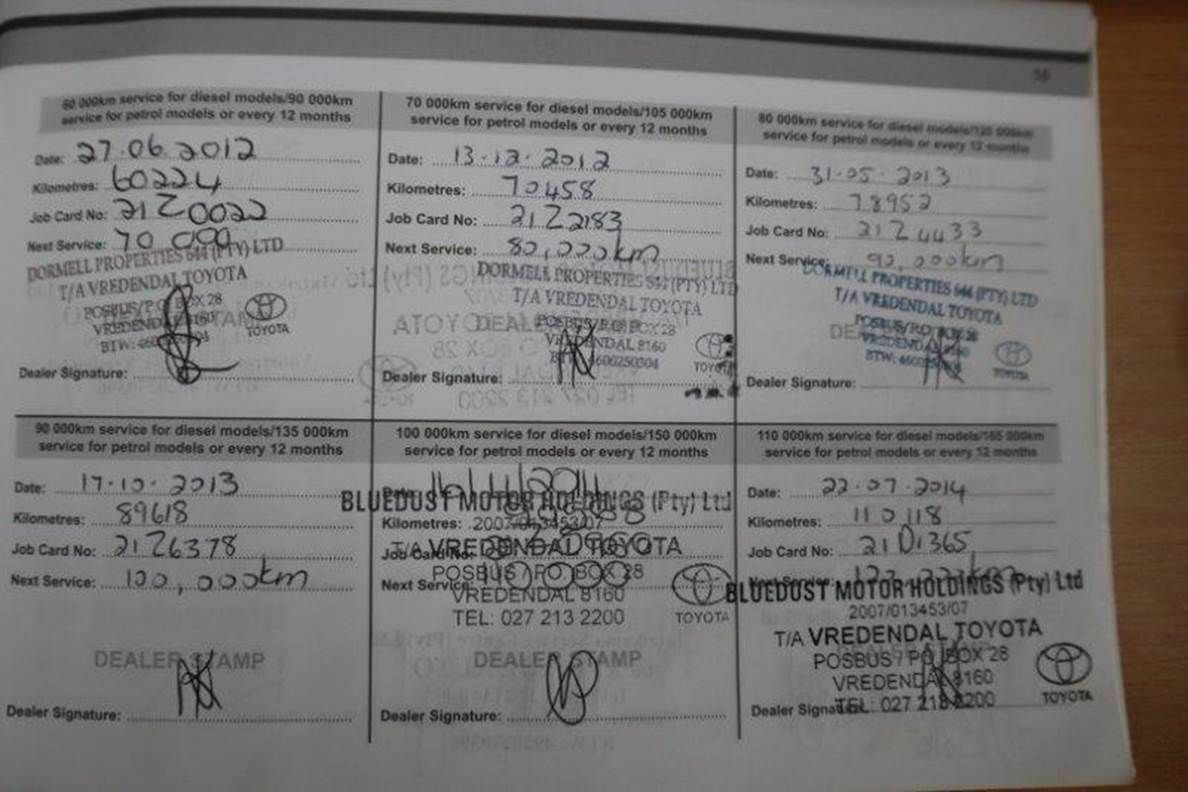 56
60 000km service for diesel models/90 000km
service for petrol models or every 12 months
Date: 27.06.2012
Kilometres: 60224
Job Card No: 21Z0022
Next Service: 70 000
DORMELL PROPERTIES 644 (PTY) LTD
T/A VREDENDAL TOYOTA
POSBUS/P.O. BOX 28
VREDENDAL 8160
BTW:
TOYOTA
Dealer Signature:
70 000km service for diesel models/105 000km
service for petrol models or every 12 months
Date: 13.12.2012
Kilometres: 70458
Job Card No: 21Z2183
Next Service: 80,000km
DORMELL PROPERTIES 644 (PTY) LTD
T/A VREDENDAL TOYOTA
DEALER
POSBUS/P.O. BOX 28
VREDENDAL 8160
4600250304
TOYOTA
Dealer Signature:
80 000km service for diesel models/120 000km
service for petrol models or every 12 months
Date: 31.05.2013
Kilometres: 78952
Job Card No: 21Z4433
Next Service: 90,000km
DORMELL PROPERTIES 644 (PTY) LTD
T/A VREDENDAL TOYOTA
POSBUS/P.O. BOX 28
VREDENDAL 8160
BTW:
TOYOTA
Dealer Signature:
90 000km service for diesel models/135 000km
service for petrol models or every 12 months
Date: 17.10.2013
Kilometres: 89618
Job Card No: 21Z6378
Next Service: 100,000km
DEALER STAMP
Dealer Signature:
100 000km service for diesel models/150 000km
service for petrol models or every 12 months
Date:
BLUEDUST MOTOR HOLDINGS (Pty) Ltd
Kilometres:
2007/013453/07
Job Card No:
T/A VREDENDAL TOYOTA
Next Service:
POSBUS / P.O. BOX 28
VREDENDAL 8160
TEL: 027 213 2200
TOYOTA
DEALER STAMP
Dealer Signature:
110 000km service for diesel models/165 000km
service for petrol models or every 12 months
Date: 22.07.2014
Kilometres: 110118
Job Card No: 21D1365
Next Service:
BLUEDUST MOTOR HOLDINGS (Pty) Ltd
2007/013453/07
T/A VREDENDAL TOYOTA
POSBUS / P.O. BOX 28
VREDENDAL 8160
TEL: 027 213 2200
TOYOTA
Dealer Signature: